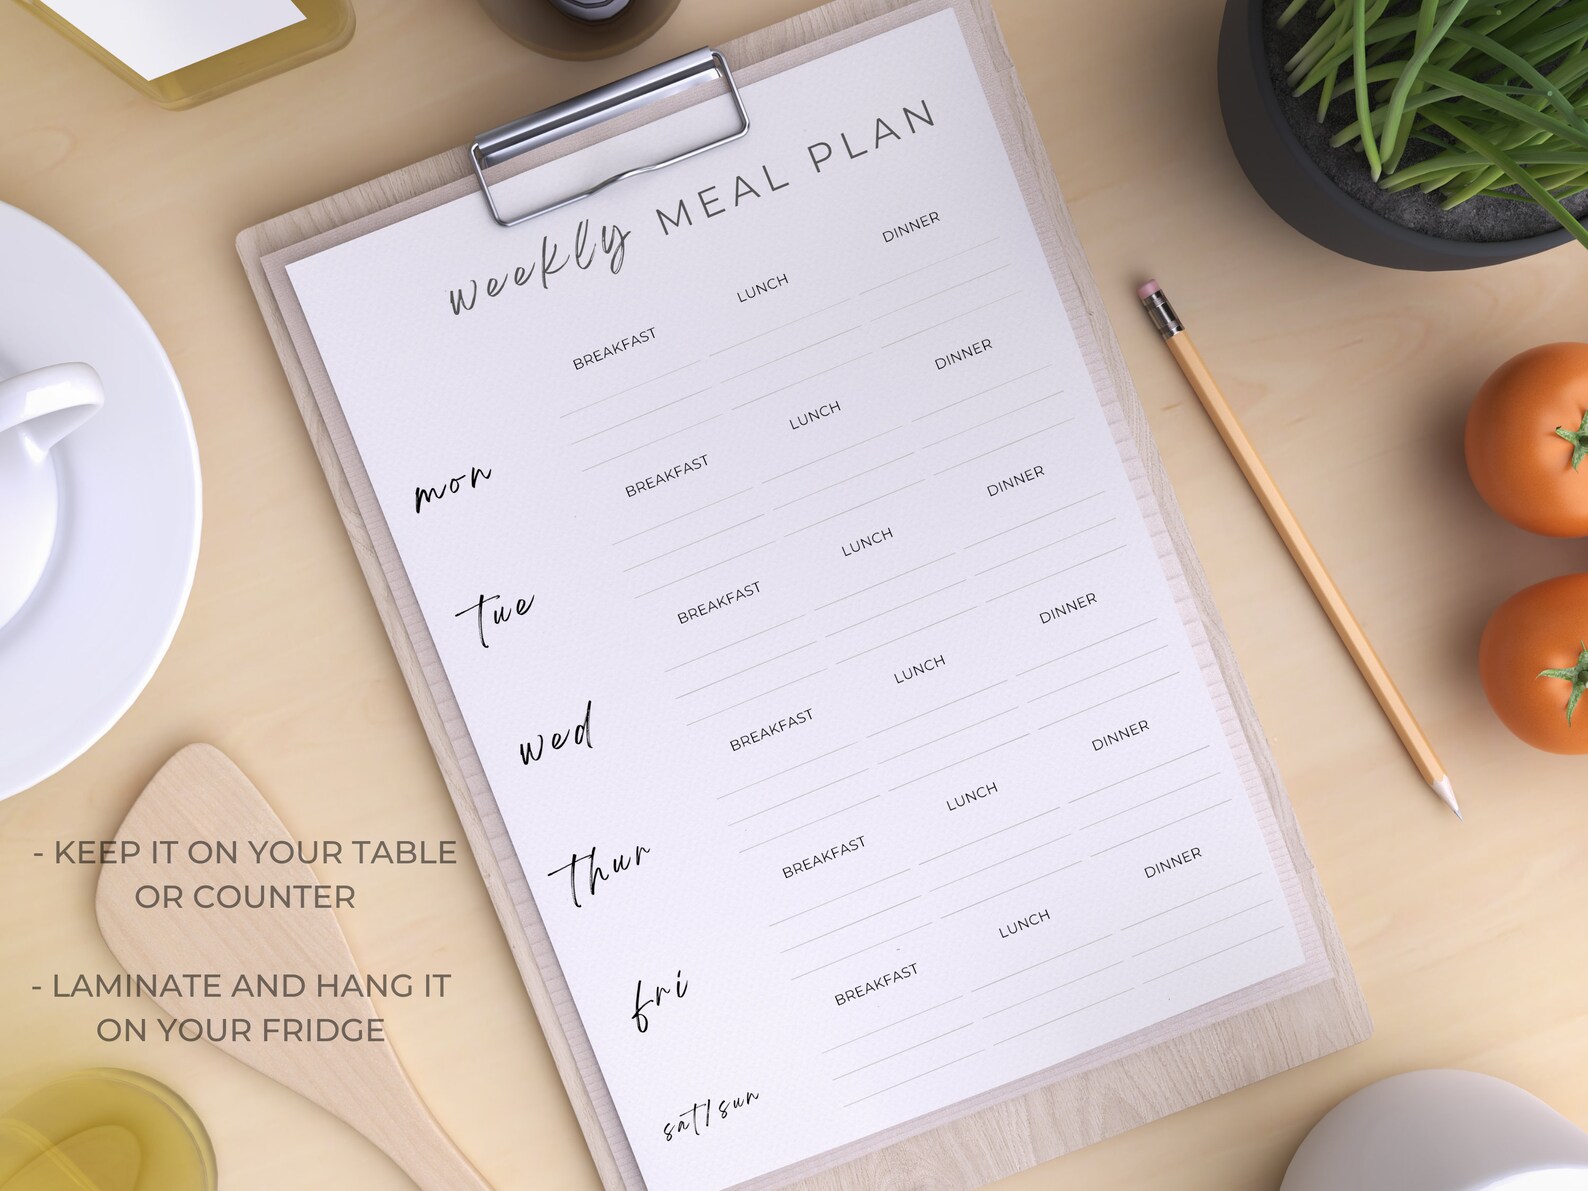 weekly MEAL PLAN
BREAKFAST LUNCH DINNER
mon
BREAKFAST LUNCH DINNER
tue
BREAKFAST LUNCH DINNER
wed
BREAKFAST LUNCH DINNER
thur
BREAKFAST LUNCH DINNER
fri
BREAKFAST LUNCH DINNER
sat/sun
- KEEP IT ON YOUR TABLE
OR COUNTER
- LAMINATE AND HANG IT
ON YOUR FRIDGE